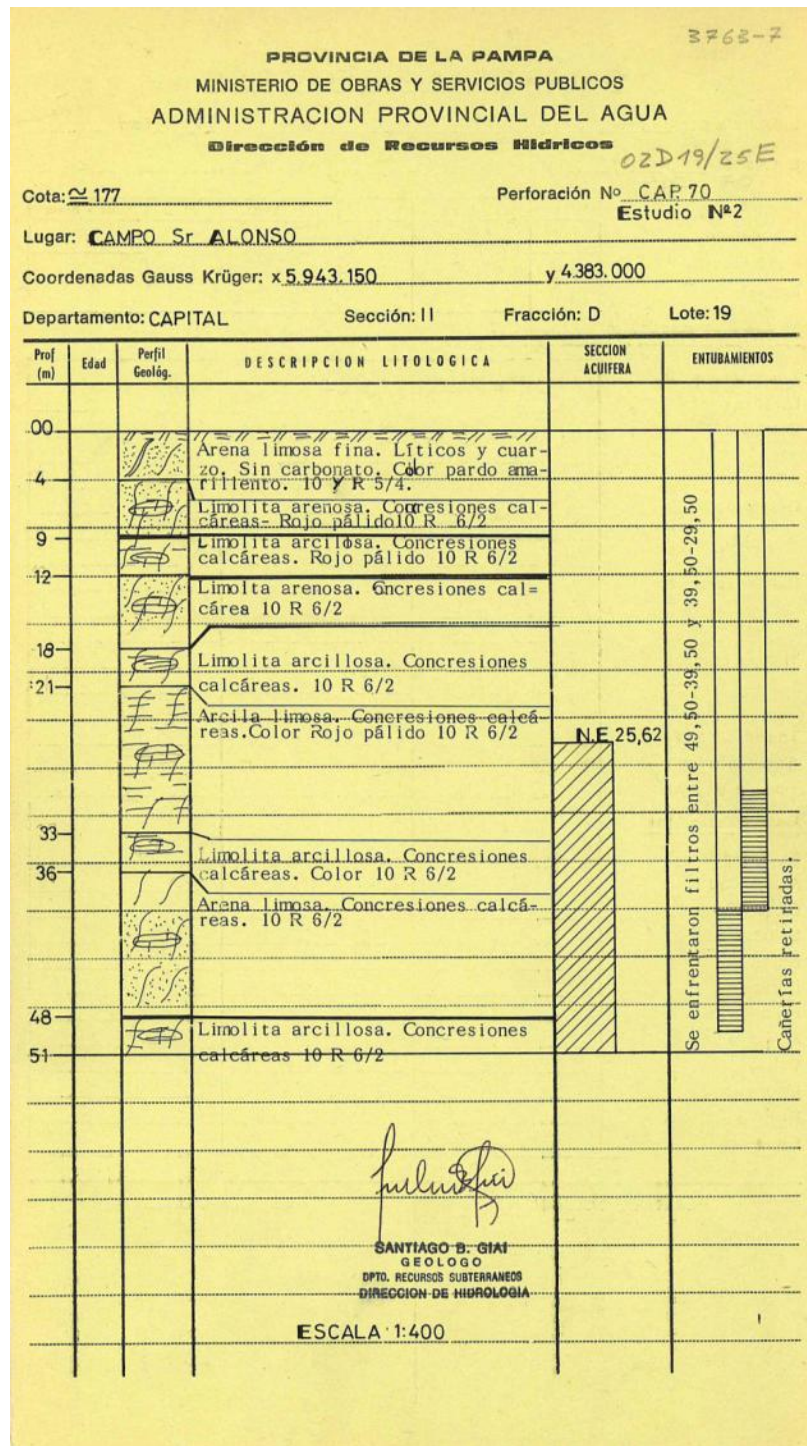 3763-7
PROVINCIA DE LA PAMPA
MINISTERIO DE OBRAS Y SERVICIOS PUBLICOS
ADMINISTRACION PROVINCIAL DEL AGUA
Dirección de Recursos Hídricos
02D19/25E
Cota: ≃ 177 Perforación Nº CAP. 70
Estudio Nº2
Lugar: CAMPO Sr ALONSO
Coordenadas Gauss Krüger: x 5.943.150 y 4.383.000
Departamento: CAPITAL Sección: II Fracción: D Lote: 19
Prof (m) Edad Perfil Geológ. DESCRIPCION LITOLOGICA SECCION ACUIFERA ENTUBAMIENTOS
00
Arena limosa fina. Líticos y cuar-
zo. Sin carbonato. Color pardo ama-
4
rillento. 10 Y R 5/4.
Limolita arenosa. Concresiones cal-
cáreas- Rojo pálido10 R 6/2
9
Limolita arcillosa. Concresiones
calcáreas. Rojo pálido 10 R 6/2
12
Limolta arenosa. Cncresiones cal=
cárea 10 R 6/2
18
Limolita arcillosa. Concresiones
21
calcáreas. 10 R 6/2
Arcila limosa. Concresiones calcá-
reas.Color Rojo pálido 10 R 6/2
N.E. 25,62
33
Limolita arcillosa. Concresiones
36
calcáreas. Color 10 R 6/2
Arena limosa. Concresiones calcá-
reas. 10 R 6/2
48
Limolita arcillosa. Concresiones
51
calcáreas 10 R 6/2
Se enfrentaron filtros entre 49,50-39,50 y 39,50-29,50
Cañerías retiradas.
SANTIAGO B. GIAI
GEOLOGO
DPTO. RECURSOS SUBTERRANEOS
DIRECCION DE HIDROLOGIA
ESCALA 1:400